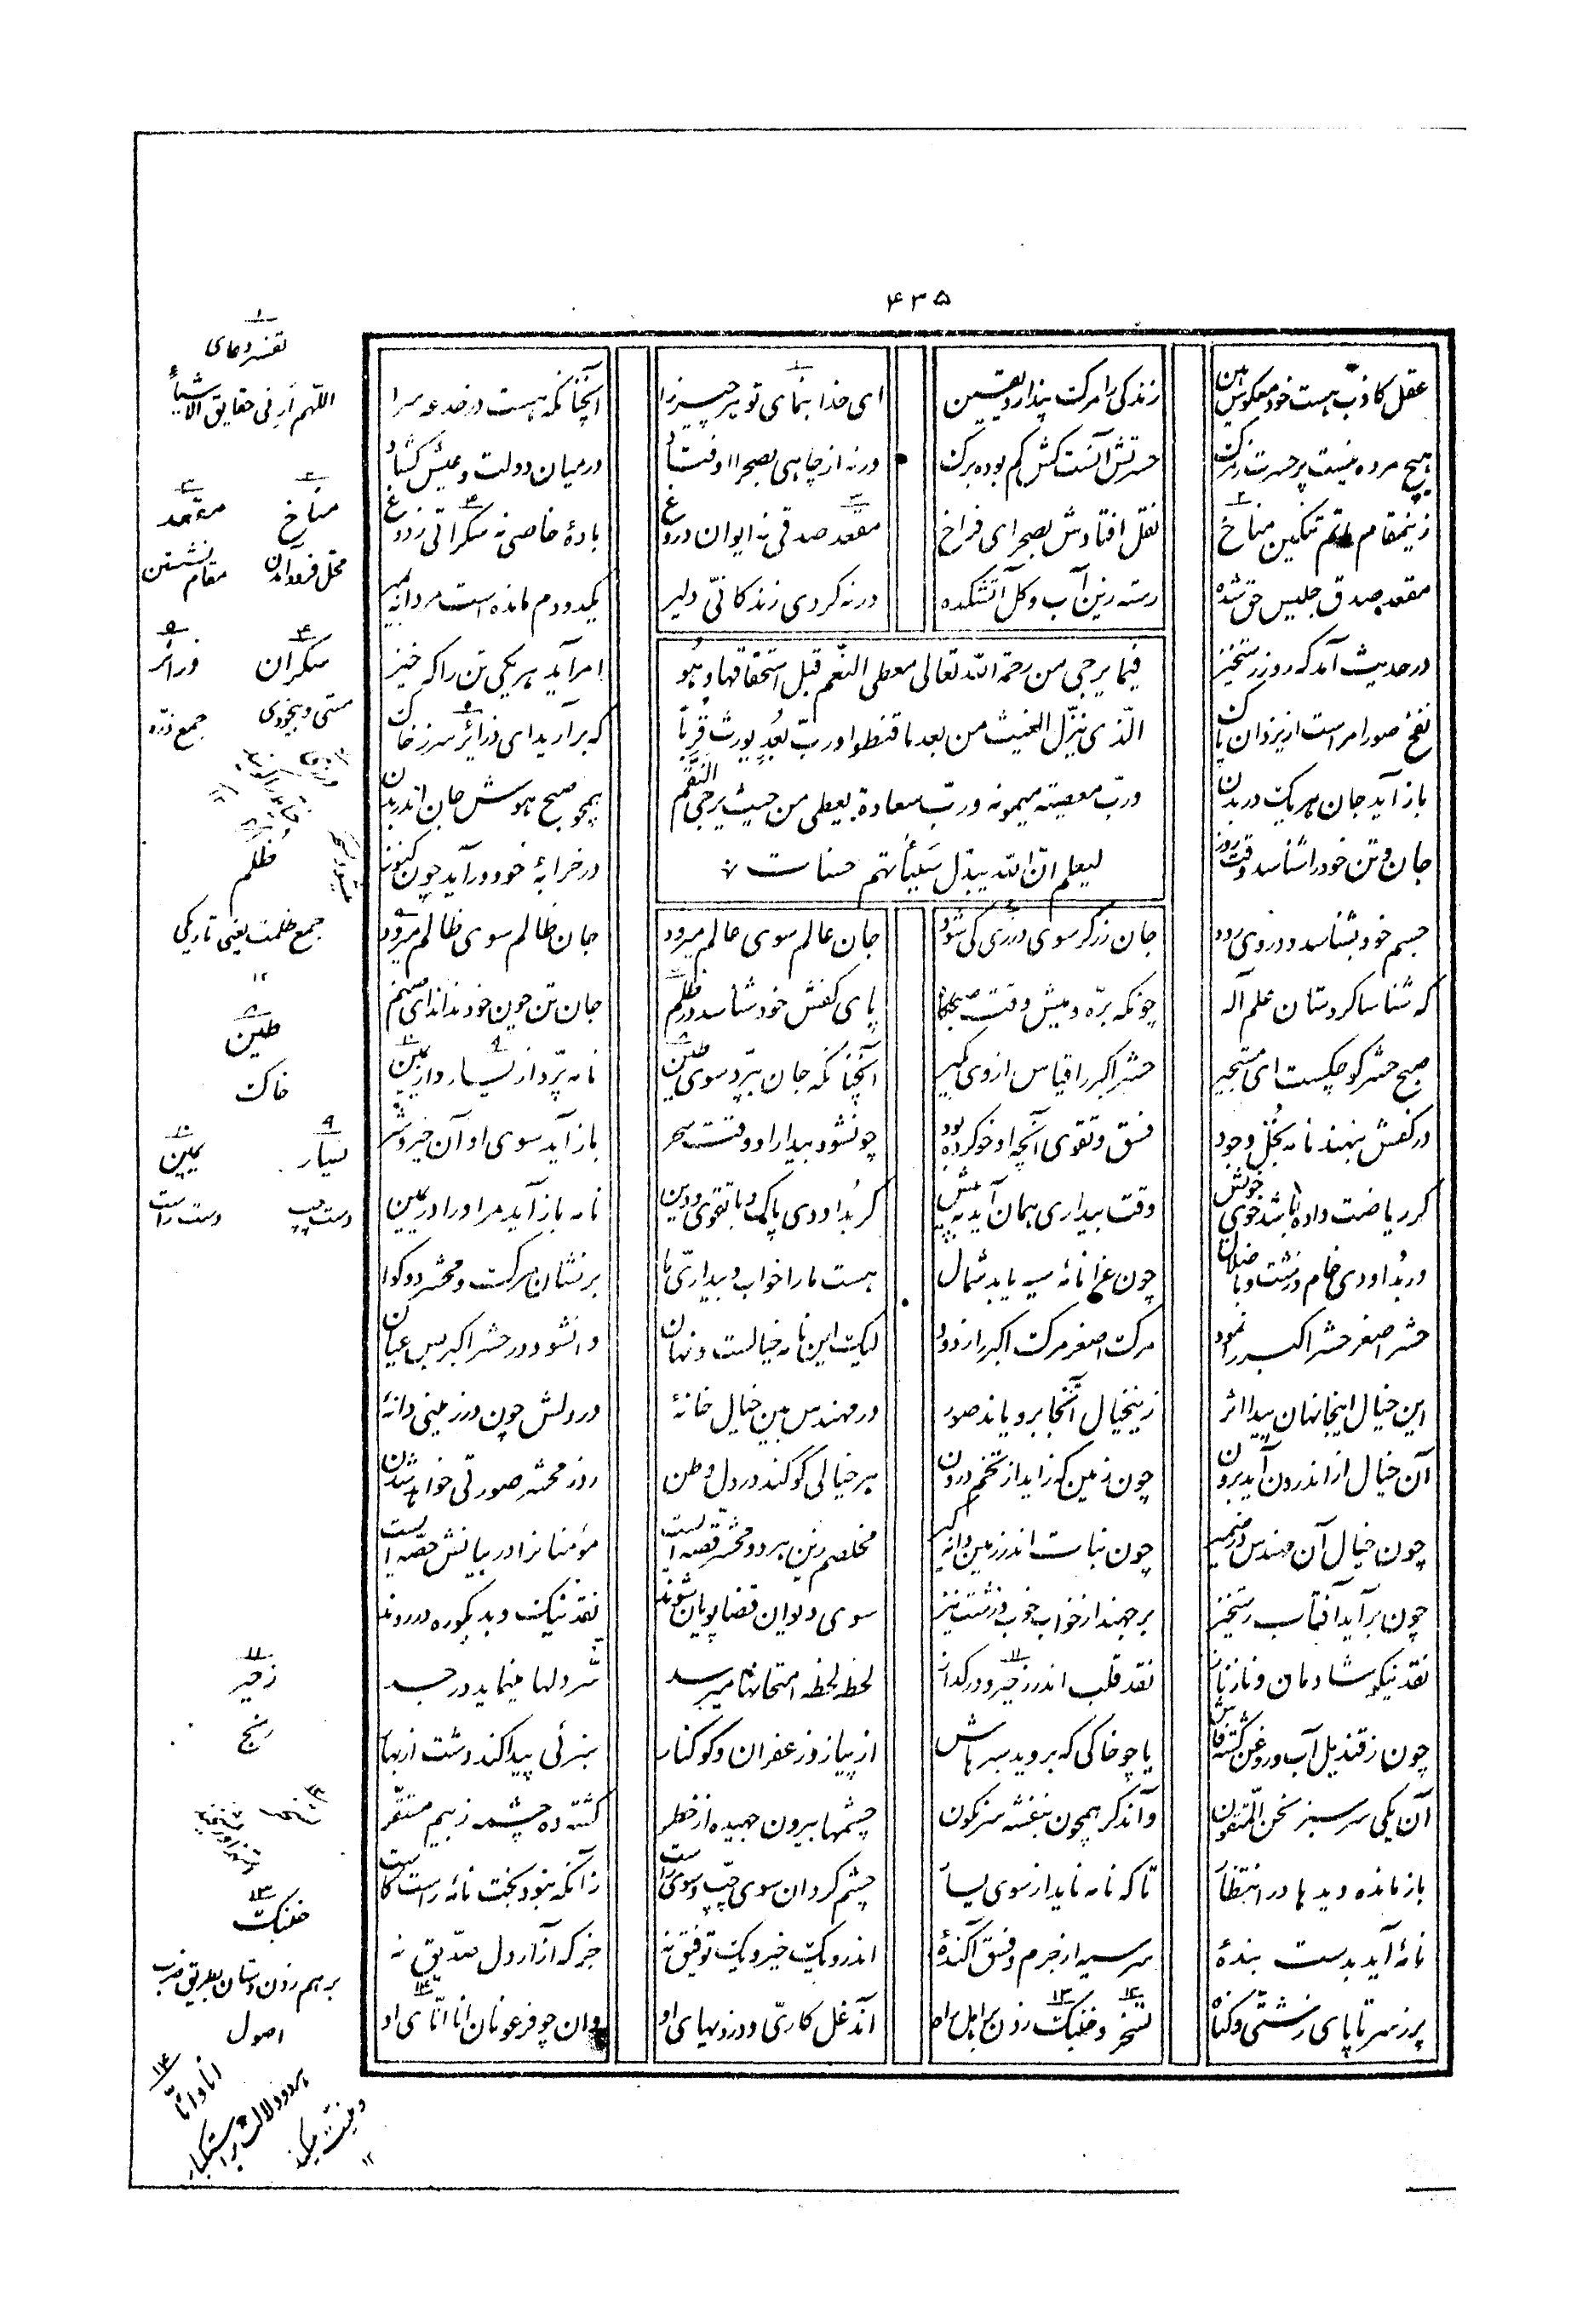 ۴۳۵
عقل کاذب هست خود معکوس بین زندگی را مرگ پندارد یقین ای خدا بنمای تو هر چیز را آنچنانکه هست در خدعه سرا
هیچ مرده نیست پر حسرت ز مرگ حسرتش آنست کش کم بوده برگ ورنه از چاهی بصحرا اوفتاد در میان دولت و عیش گشاد
زینمقام ماتم تنگین مناخ نقل افتادش بصحرای فراخ مقعد صدقی نه ایوان دروغ بادهٔ خاصی نه سکرانی ز دوغ
مقعد صدق جلیس حق شده رسته زین آب و گل آتشکده ورنه کردی زندگانی دلیر یکدودم مانده است مردانه بمیر
فیما یرجی من رحمة الله تعالی معطی النعم قبل استحقاقها و هو
الّذی ینزّل الغیث من بعد ما قنطوا و ربّ بُعدٍ یورث قرباً
وربّ معصیته میمونه و ربّ سعادة یعطی من حیث یرجی النقم
لیعلم انّ الله یبدّل سیّئاتهم حسنات
در حدیث آمد که روز رستخیز امر آید هر یکی تن را که خیز
نفخ صور امر است از یزدان پاک که برآرید ای ذرائر سر ز خاک
باز آید جان هر یک در بدن همچو صبح هوش جان اندر بدن
جان و تن خود را شناسد وقت روز در خرابهٔ خود در آید چون کنوز
جسم خود بشناسد و در وی رود جان زرگر سوی درزی کی شود جان عالم سوی عالم میرود جان ظالم سوی ظالم میرود
که شناسا کردستان علم اله چونکه برّه و میش وقت صبحگاه پای کفش خود شناسد در ظلم جان تن چون خود نداند ای صنم
صبح حشر کوچکست ای مستجیر حشر اکبر را قیاس از وی بگیر آنچنانکه جان بپرد سوی طین نامه پرّد از یسار و از یمین
در کفش بنهند نامه بخل و جود فسق و تقوی آنچه او خو کرده بود چونشود بیدار او وقت سحر باز آید سوی او آن خیر و شر
گر ریاضت داده باشد خوی خویش وقت بیداری همان آید به پیش گر بد او دی پاک و با تقوی و دین نامه باز آید مر او را در یمین
ور بُد او دی خام و زشت و با ضلال چون عزا نامه سیه یابد شمال هست ما را خواب و بیداری ما بر نشان مرگ و محشر دو گوا
حشر اصغر حشر اکبر را نمود مرگ اصغر مرگ اکبر را زدود لیک این نامه خیالست و نهان وانشود در حشر اکبر بس عیان
این خیال اینجا نهان پیدا اثر زینخیال آنجا برویاند صور در مهندس بین خیال خانهٔ در دلش چون در زمینی دانهٔ
آن خیال از اندرون آید برون چون زمین که زاید از تخم درون هر خیالی کو کند در دل وطن روز محشر صورتی خواهد شدن
چون خیال آن مهندس در ضمیر چون نبات اندر زمین دانه گیر مخلصم زین هر دو محشر قصه ایست مؤمنانرا در بیانش حصّه ایست
چون برآید آفتاب رستخیز برجهند از خواب خوب و زشت نیز سوی دیوان قضا پویان شوند نقد نیک و بد بکوره در روند
نقد نیکو شادمان و ناز ناز نقد قلب اندر زحیر و در گداز لحظه لحظه امتحانها میرسد سرّ دلها مینماید در جسد
چون ز قندیل آب و روغن گشته فاش یا چو خاکی که بروید سرهاش از پیاز و زعفران و کوکنار سبزئی پیدا کند دشت از بهار
آن یکی سرسبز نحن المتقون وآن دگر همچون بنفشه سرنگون چشمها بیرون جهیده از خطر گشته ده چشمه ز بیم مستقر
باز مانده دیدها در انتظار تا که نامه ناید از سوی یسار چشم گردان سوی چپ و سوی راست زآنکه نبود بخت نامهٔ راست کا
نامهٔ آید بدست بندهٔ سر سیه از جرم و فسق آکندهٔ اندرو یک خیر و یک توفیق نه جز که آزار دل صدیق نه
پر ز سر تا پای زشتی و گناه تسخر و خنبک زدن بر اهل راه آن دغل کاری و دزدیهای او وان چو فرعونان انا انّای او
۱
تفسیر دعای
اللّهم أرنی حقایق الاشیاء
۲ ۳
مناخ مقعد
محل فرود آمدن مقام نشستن
۴ ۵
سکران ذرائر
مستی و بیخودی جمع ذرّه
ظلم
جمع ظلمت یعنی تاریکی
۱۲
۸
طین
خاک
۹ ۱۰
یسار یمین
دست چپ دست راست
۱۱
زحیر
رنج
۱۳
خنبک
برهم زدن دستان بطریق ضرب
اصول
۱۴
انا و انّا
هر دو دلالت بر استکبار
و منیّت میکند
۱۲